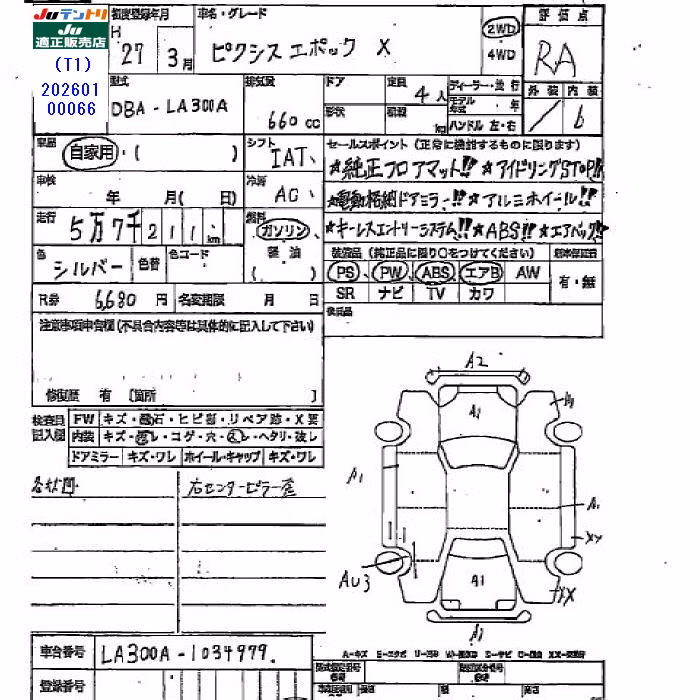 Juテントリ
Ju
適正販売店
(T1)
202601
00066
初度登録年月
H 27 3月
車名・グレード
ピクシス エポック X
2WD
4WD
評価点
RA
外装 内装
/ b
型式
DBA-LA300A
排気量
660cc
ドア
形状
定員
4人
積載
kg
ディーラー・並行
モデル年式 年
ハンドル 左・右
車歴
自家用・( )
シフト
IAT
セールスポイント(正常に機能するものに限ります)
★純正フロアマット!!★アイドリングSTOP!!
★電動格納ドアミラー!!★アルミホイール!!
★キーレスエントリーシステム!!★ABS!!★エアバッグ!!
車検
年 月( 日)
冷房
AC
走行
5万7千211km
燃料
ガソリン
軽油
( )
色
シルバー
色替
色コード
装備品(純正品に限り○をつけてください)
PS PW ABS エアB AW
SR ナビ TV カワ
有・無
R券 6,680円
名変期限 月 日
後日品
注意事項申告欄(不具合内容等は具体的に記入して下さい)
修復歴 有 〔箇所 〕
検査員記入欄
FW キズ・飛石・ヒビ割・リペア跡・X要
内装 キズ・汚レ・コゲ・穴・スレ・ヘタリ・破レ
ドアミラー キズ・ワレ ホイール・キャップ キズ・ワレ
右センターピラー歪
A2
A1
A1
A1
A1
XX
AU3
A1
XX
A1
車台番号 LA300A-1034979.
登録番号